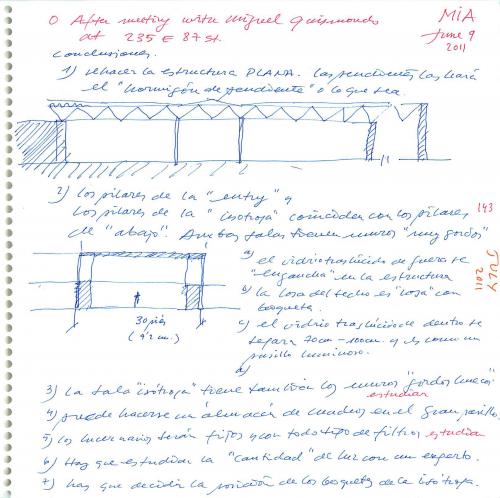 O After meeting with Miguel Quismondo
at 235 E 87 St.
MIA
June 9
2011
Conclusiones.
1) rehacer la estructura PLANA. Las pendientes las hará
el "hormigón de pendiente" o lo que sea.
2) los pilares de la "entry" y
los pilares de la "isotropa" coinciden con los pilares
de "abajo". Ambas salas tienen muros "muy gordos"
143
JULY
2011
a) el vidrio traslúcido de fuera se
"engancha" en la estructura
b) la losa del techo es "losa" con
boquete.
c) el vidrio traslúcido de dentro se
separa 70cm - 100cm. y es como un
pasillo luminoso.
d)
30 piés
(9'2 m.)
3) La sala "isótropa" tiene también los muros "gordos huecos"
estudiar
4) puede hacerse un almacén de cuadros en el gran pasillo.
5) los lucernarios serán fijos y con todo tipo de filtros estudiar
6) Hay que estudiar la "cantidad" de luz con un experto.
7) hay que decidir la posición de los boquetes de la isótropa.